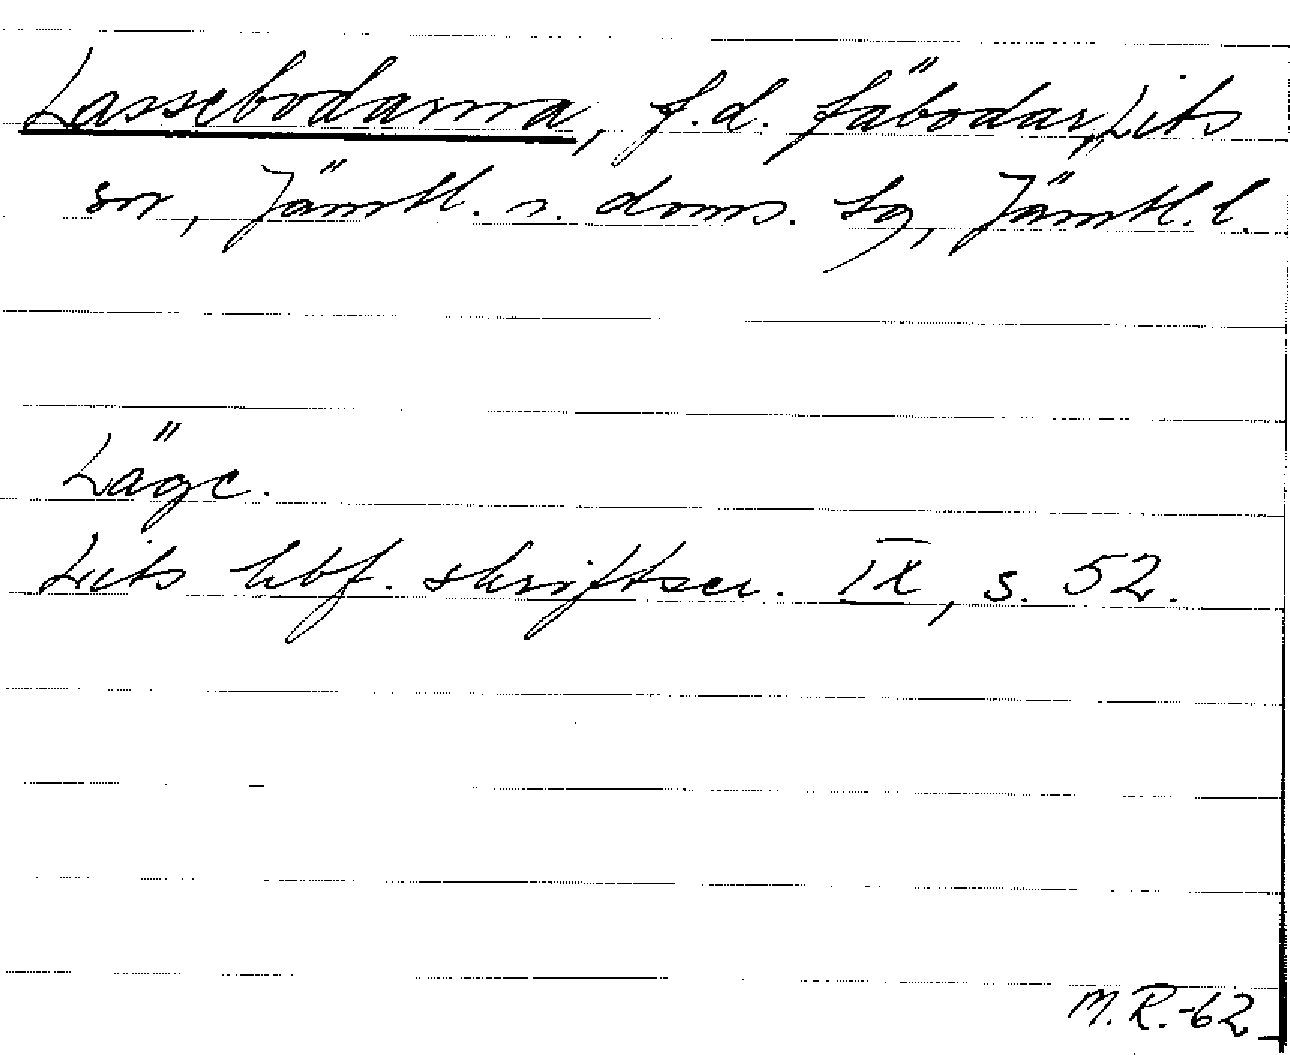 Lassebodarna, f.d. fäbodar, Lits
sn, Jämtl. n. doms. tg, Jämtl. l.
Läge.
Lits hbf. skriftser. IX, s. 52.
M.R.-62